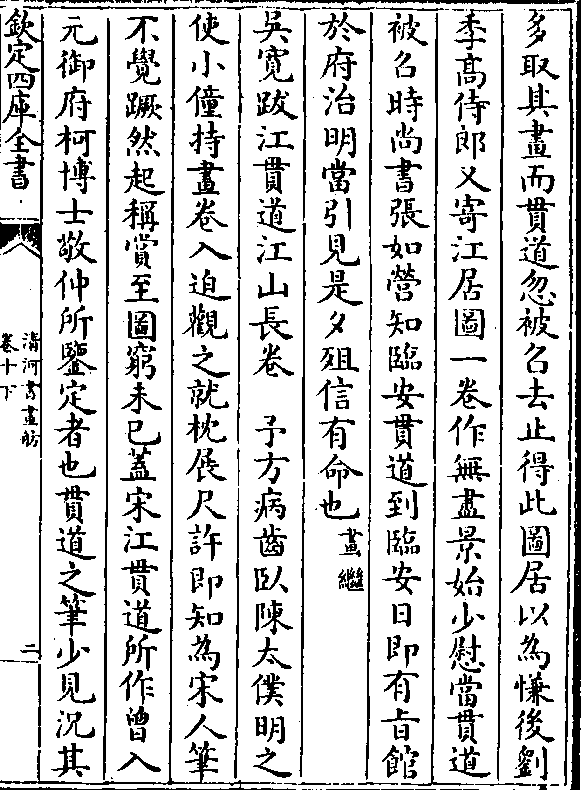 多取其畫而貫道忽被召去止得此圖居以為慊後劉
季髙侍郎又寄江居圖一卷作無盡景始少慰當貫道
被召時尚書張如瑩知臨安貫道到臨安日即有旨館
於府治明當引見是夕殂信有命也畫繼
吳寛跋江貫道江山長卷　予方病齒臥陳太僕明之
使小僮持畫卷入迫觀之就枕展尺許即知為宋人筆
不覺蹶然起稱賞至圖窮未已蓋宋江貫道所作曾入
元御府柯博士敬仲所鑒定者也貫道之筆少見況其
欽定四庫全書
清河書畫舫
卷十下
二